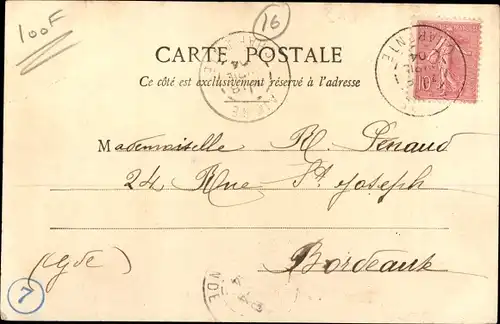 100F
16
CARTE POSTALE
Ce côté est exclusivement réservé à l'adresse
Mademoiselle R. Penaud
24 Rue St Joseph
(Gde)
Bordeaux
7